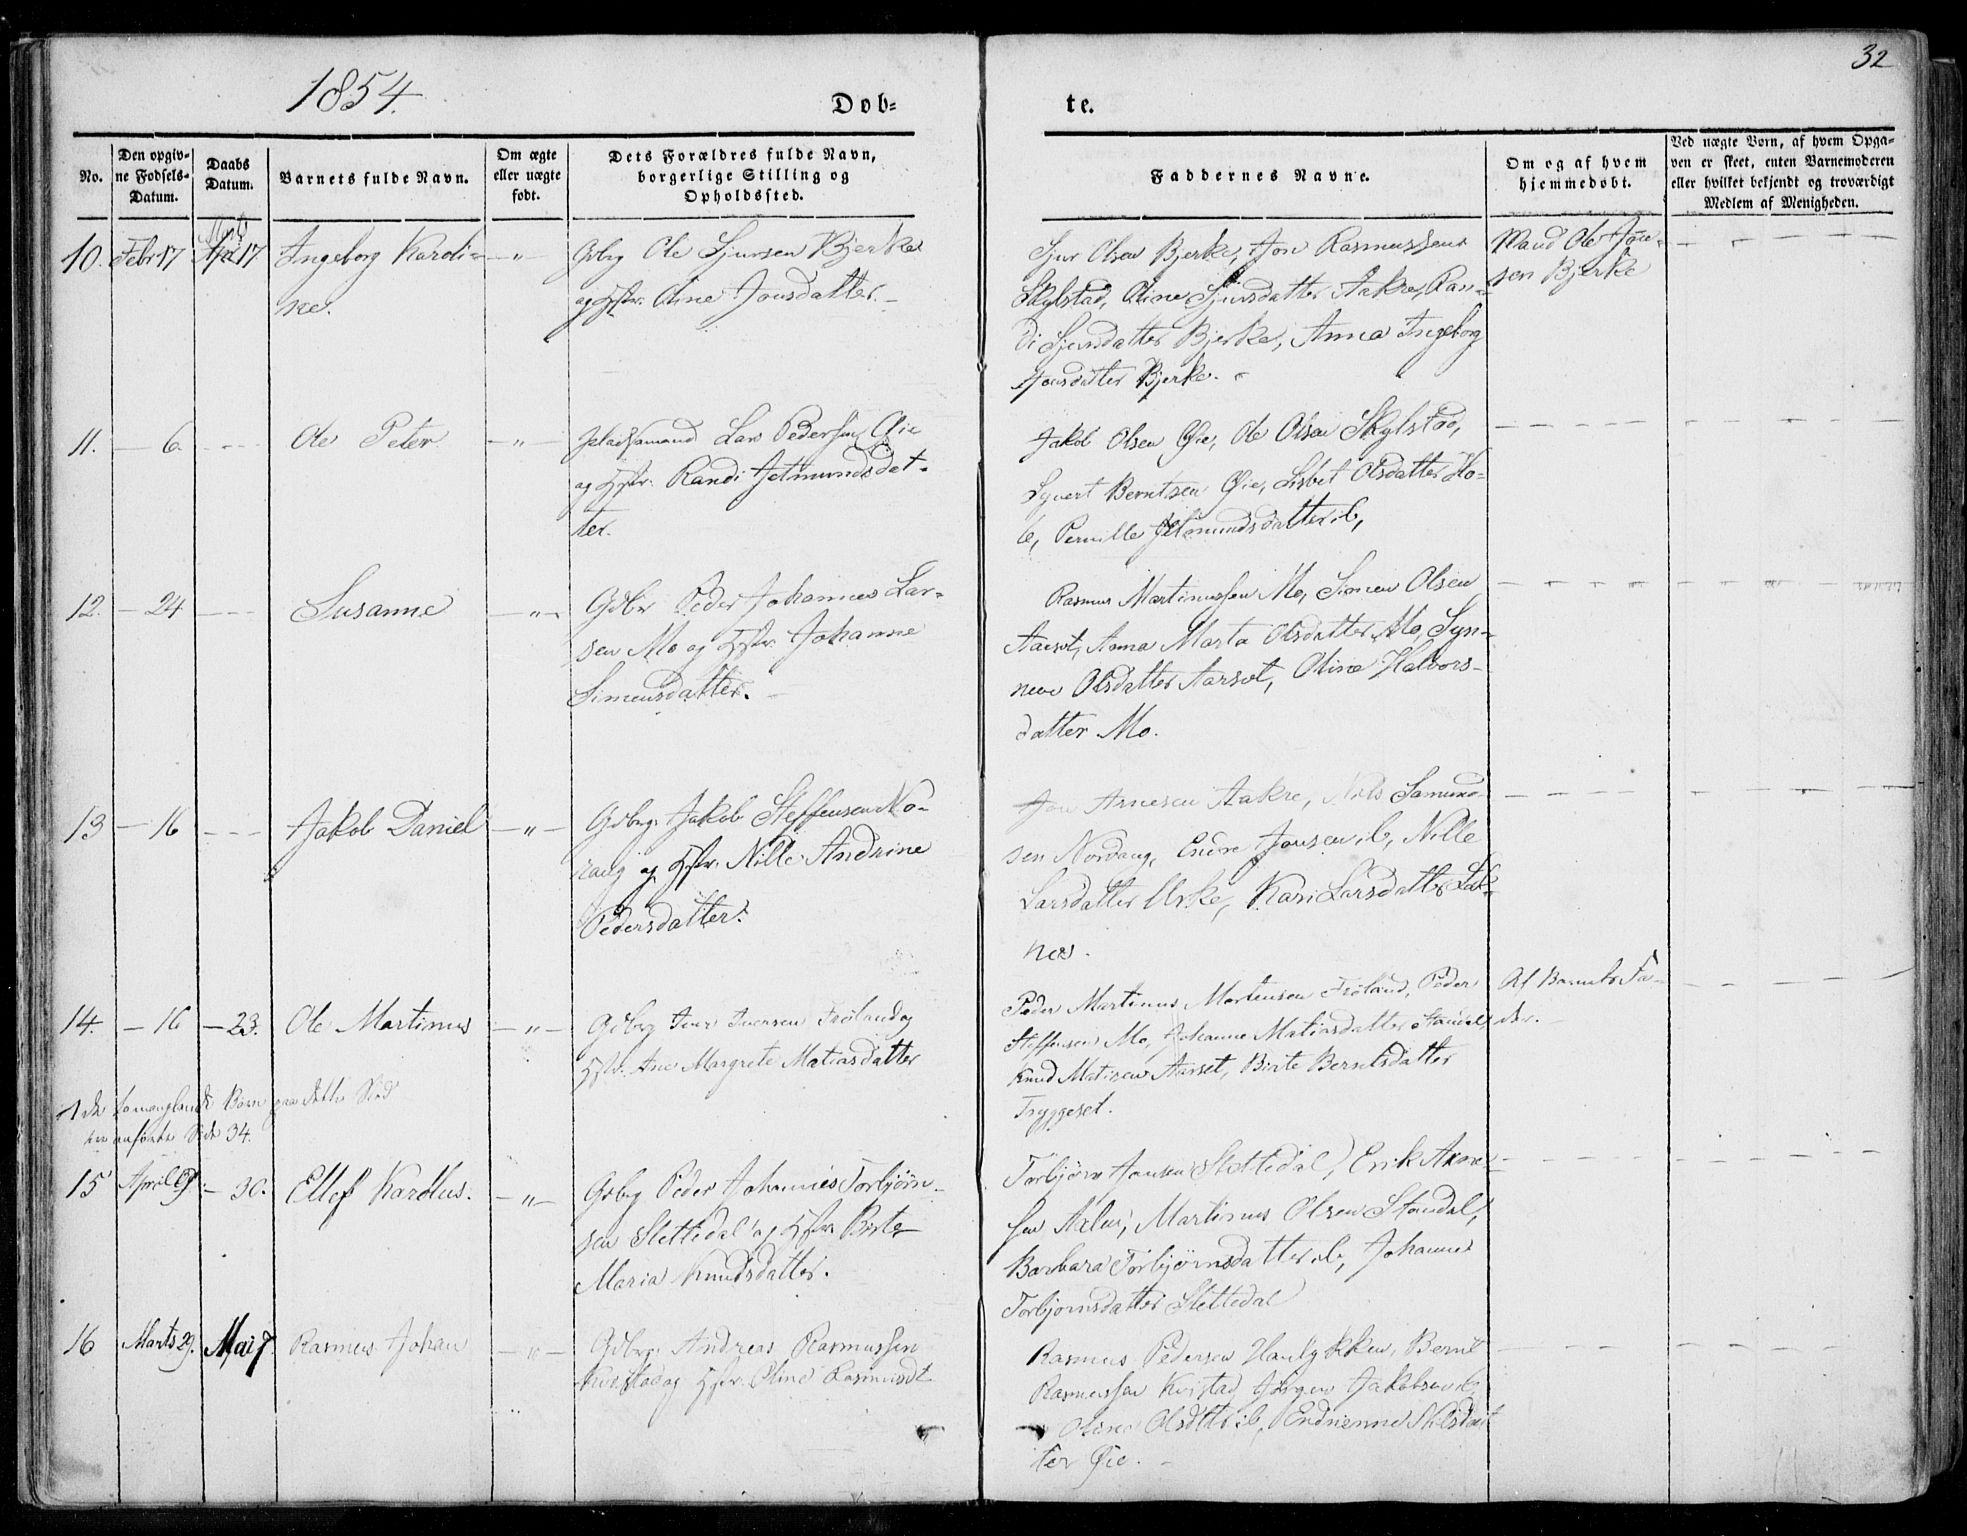 32
1854.
Døb-
te.
No.
Den opgiv-
ne Fødsels-
Datum.
Daabs
Datum.
Barnets fulde Navn.
Om ægte
eller uægte
født.
Dets Forældres fulde Navn,
borgerlige Stilling og
Opholdssted.
Faddernes Navne.
Om og af hvem
hjemmedøbt.
Ved uægte Børn, af hvem Opga-
ven er skeet, enten Barnemoderen
eller hvilket bekjendt og troværdigt
Medlem af Menigheden.
10. Febr 17 17 Ingeborg Karoli-
ne.
Gdbrg Ole Sjursen Bjerke
og Hstr. Oline Jonsdatter.
Sjur Olsen Bjerke, Jon Rasmussen
Skylstad, Oline Sjursdatter Aakre, Ran-
di Sjursdatter Bjerke, Anna Ingeborg
Jonsdatter Bjerke.
Mand Ole Jon-
sen Bjerke
11. — 6 — Ole Peter — " —
Pladsmand Lars Pedersen Øie
og Hstr. Randi Jetmundsdat-
ter.
Jakob Olsen Øie, Ole Olsen Skylstad,
Syvert Berntsen Øie, Lisbet Olsdatter Ho-
le, Pernille Jetmundsdatter ib,
12. — 24 — Susanne — " —
Gdbr Peder Johannes Lar-
sen Mo og Hstr. Johanne
Simensdatter.
Rasmus Martinussen Mo, Simen Olsen
Aarset, Anna Marta Olsdatter Mo, Syn-
neve Olsdatter Aarset, Oline Halvors-
datter Mo.
13 — 16 — Jakob Daniel — " —
Gdbrg. Jakob Steffensen No-
rang og Hstr. Nille Andrine
Pedersdatter.
Jon Arnesen Aakre, Nils Samund-
sen Nordang, Endre Jonsen ib, Nille
Larsdatter Urke, Kari Larsdatter Lek-
nes.
14. — 16 — 23. Ole Martinus — " —
Gdbrg Iver Iversen Frøland og
Hstr. Ane Margrete Matiasdatter
Peder Martinus Mortensen Frøland, Peder
Steffensen Mo, Johanne Matiasdatter Standal,
Knud Matisen Aarset, Birte Berntsdatter
Tryggeset.
Af Barnets Fa-
der.
de to manglende Børn paa dette Sted
ere anførte Side 34.
15 April — 30. Ellef Karolus. — " —
Gdbrg Peder Johannes Torbjørn-
sen Slettedal og Hstr. Birte
Maria Knudsdatter.
Torbjørn Jonsen Slettedal, Erik Arne-
sen Malen, Martinus Olsen Standal,
Barbara Torbjørnsdatter ib, Johanne
Torbjørnsdatter Slettedal
16 Marts 29. Mai 7 Rasmus Johan — " —
Gdbrg. Andreas Rasmussen
Kvistad og Hstr. Oline Rasmusdt
Rasmus Pedersen Haulykken, Bernt
Rasmussen Kvistad, Jørgen Jakobsen ib,
Oline Olsdtter ib, Endrienne Nilsdat
ter Øie.